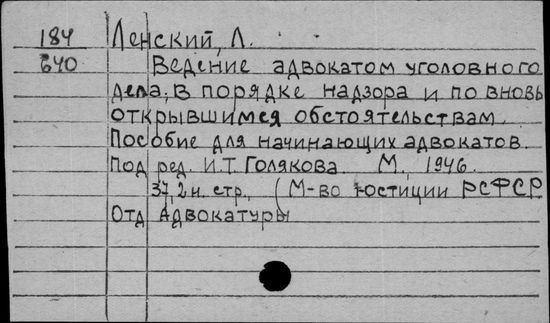 184 Ленский, Л.
640 Ведение адвокатом уголовного
дела, в порядке надзора и по вновь
открывшимся обстоятельствам.
Пособие для начинающих адвокатов.
Под ред. И.Т. Голякова М., 1946.
37, 2 н. стр., (М-во юстиции РСФСР
Отд Адвокатуры